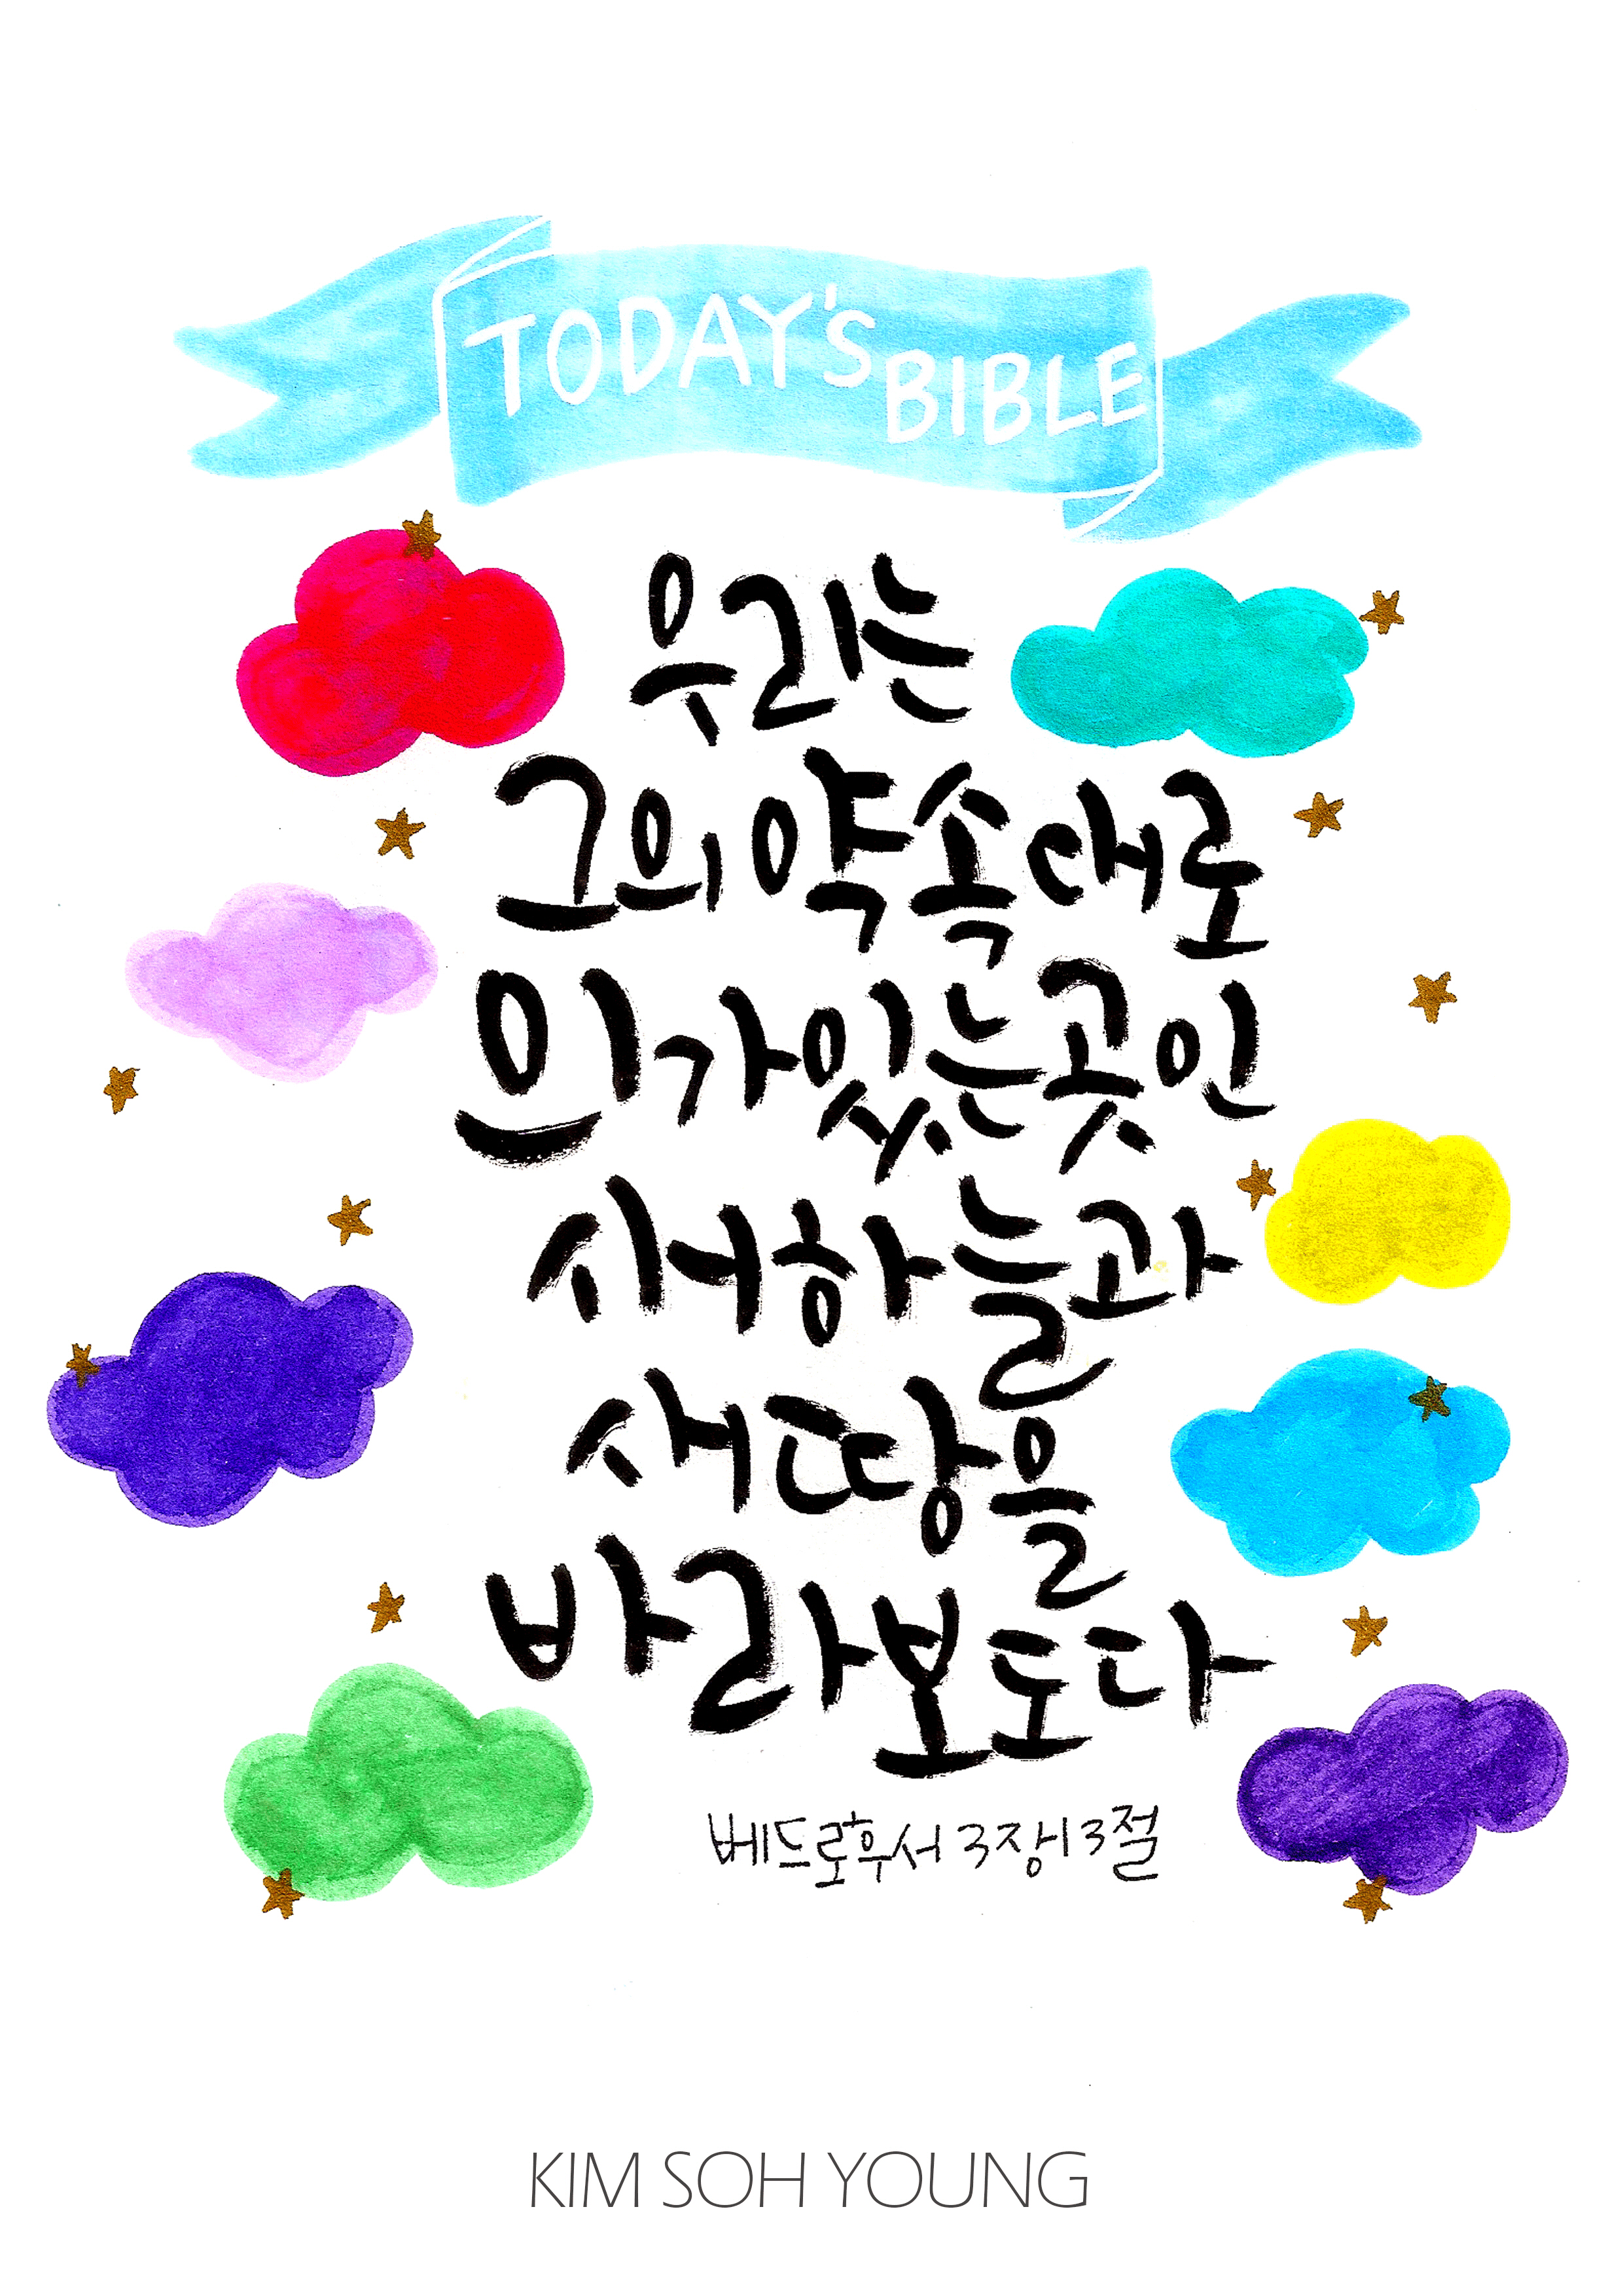 TODAY'S BIBLE
우리는
그의 약속대로
의가 있는 곳인
새 하늘과
새 땅을
바라보도다
베드로후서 3장 13절
KIM SOH YOUNG